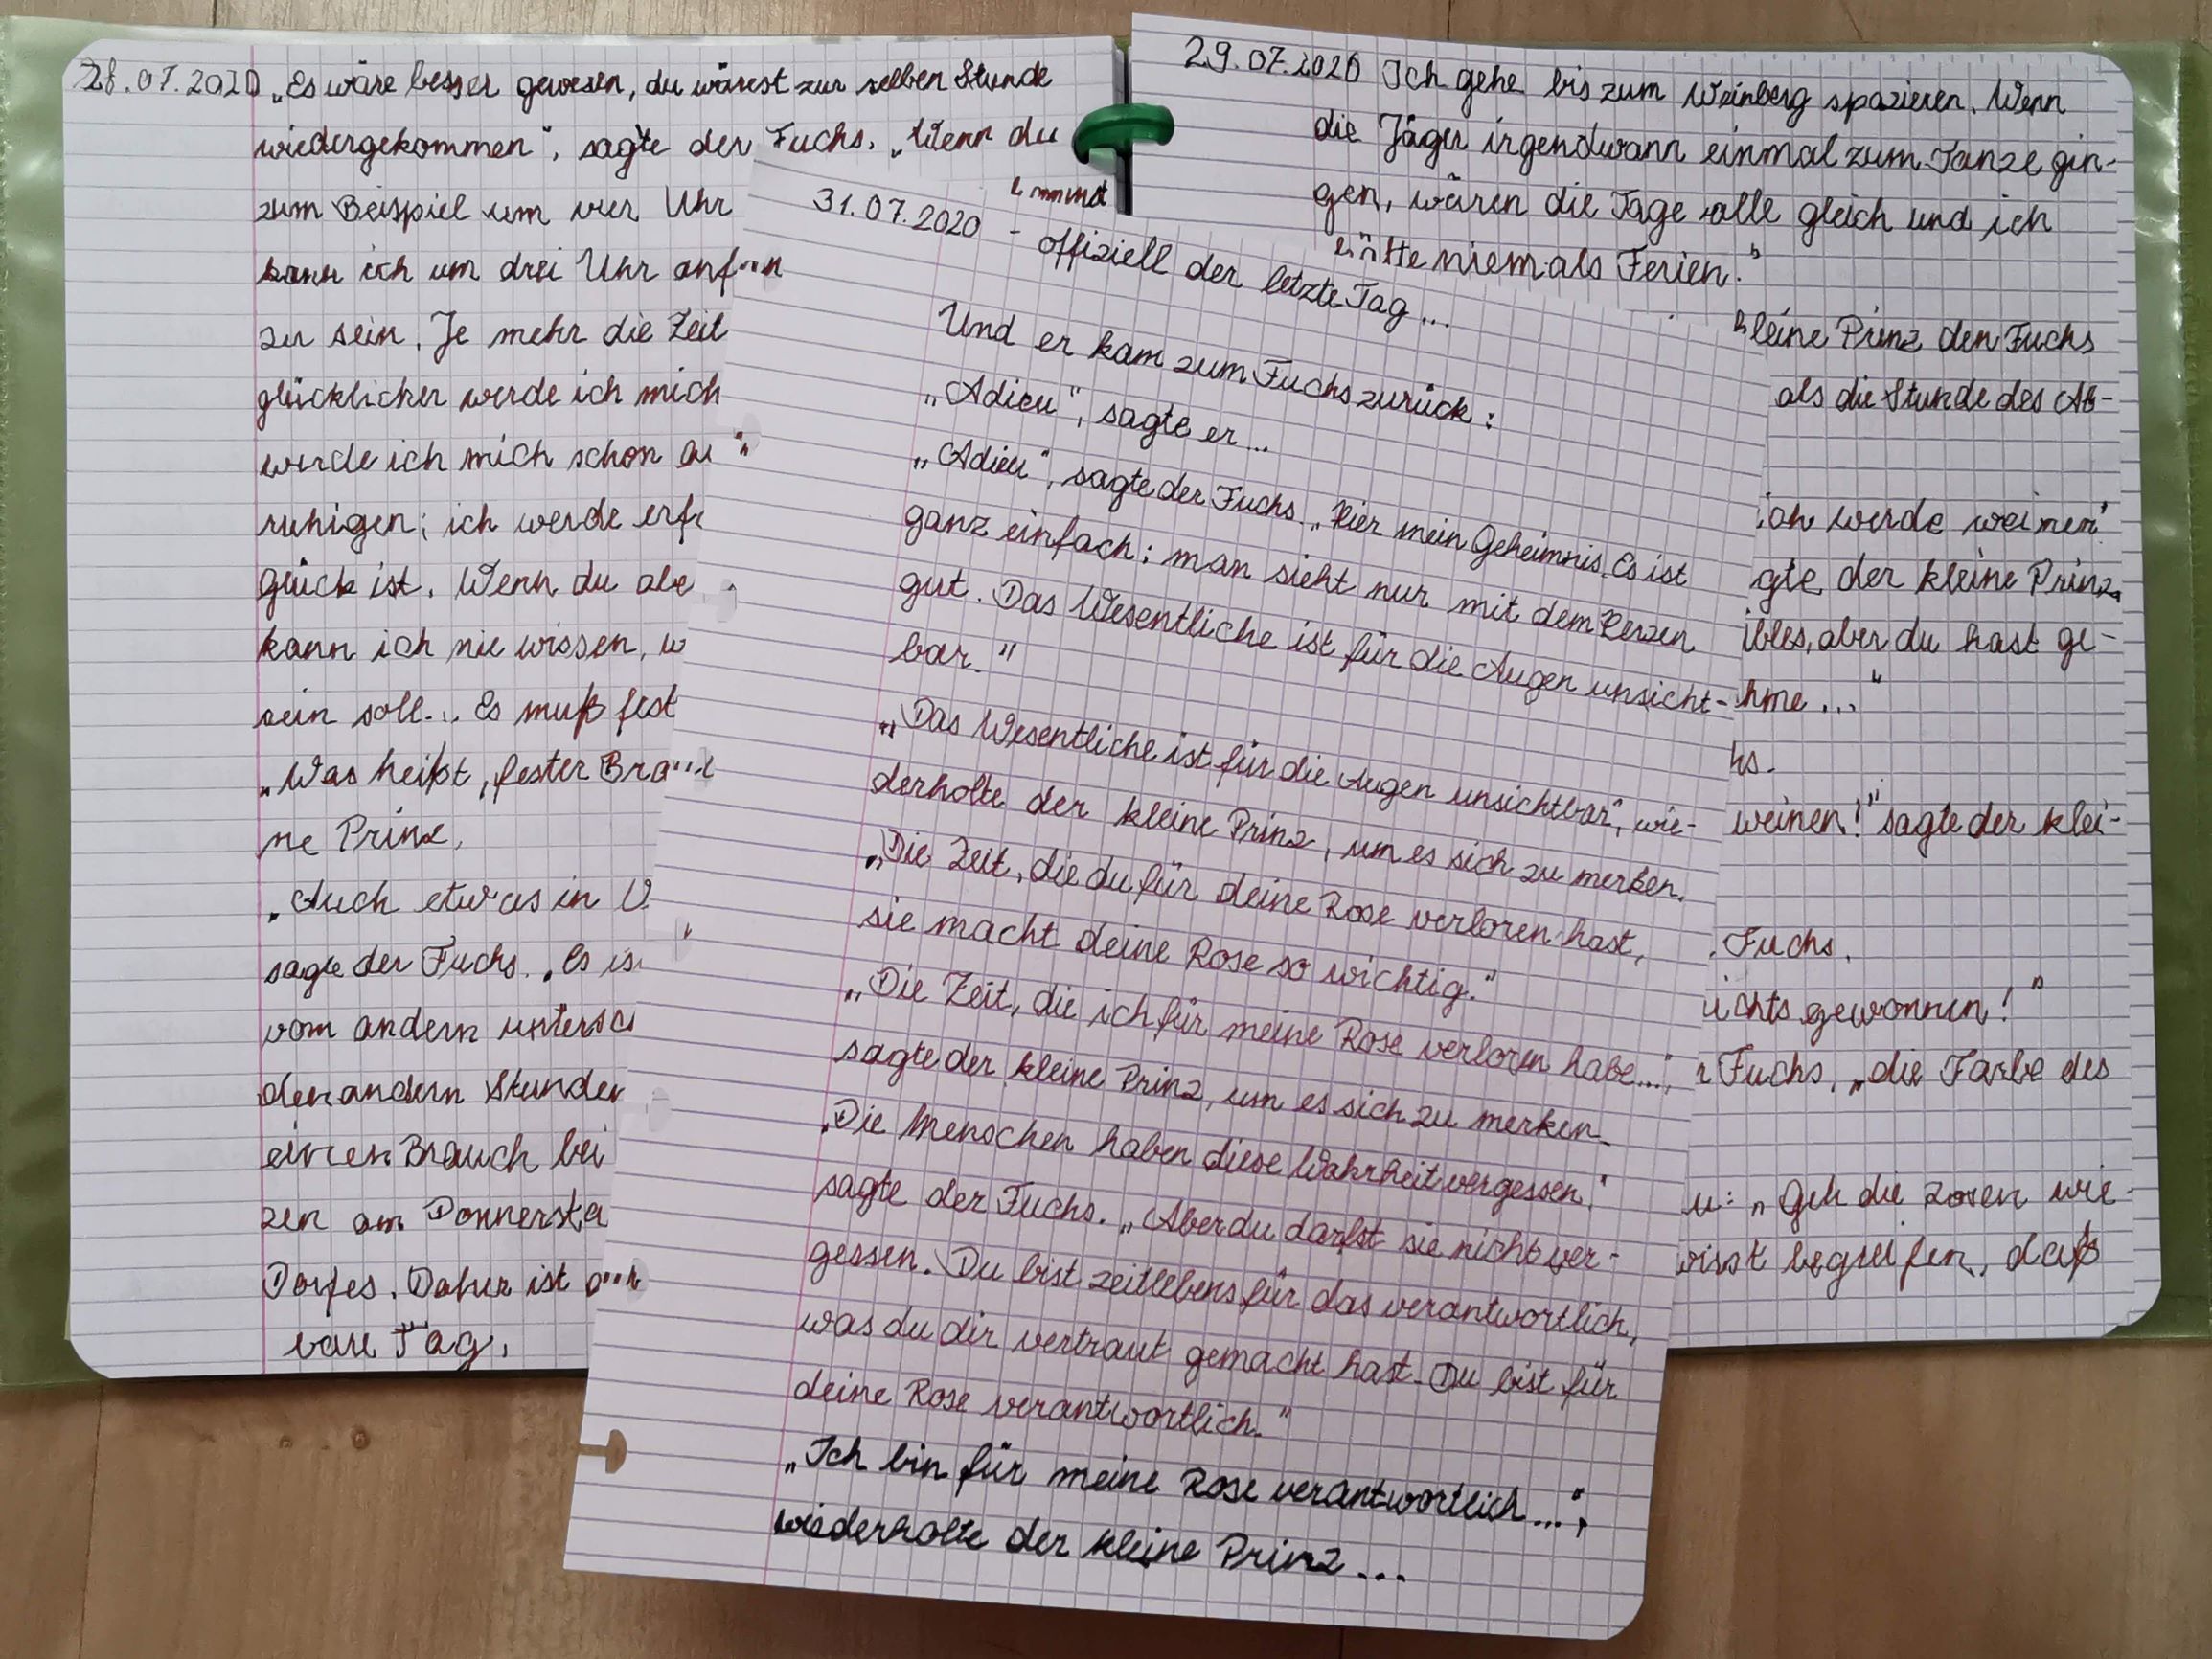 28.07.2020 „Es wäre besser gewesen, du wärest zur selben Stunde
wiedergekommen", sagte der Fuchs. „Wenn du
zum Beispiel um vier Uhr
kann ich um drei Uhr
zu sein. Je mehr die Zeit
glücklicher werde ich mich
werde ich mich schon
ruhigen; ich werde
Glück ist. Wenn du
kann ich nie wissen,
sein soll... Es muß fest
„Was heißt ‚fester
ne Prinz.
„Auch etwas in
sagte der Fuchs. „Es
vom andern
den andern
einen Brauch bei
zen am
Dorfes. Daher ist
bare Tag.
29.07.2020 Ich gehe bis zum Weinberg spazieren. Wenn
die Jäger irgendwann einmal zum Tanze gin-
gen, wären die Tage alle gleich und ich
hätte niemals Ferien."
kleine Prinz den Fuchs
als die Stunde des Ab-
ich werde weinen"
gte der kleine Prinz
bles, aber du hast ge-
hme ..."
hs.
weinen!" sagte der klei-
Fuchs.
ichts gewonnen!"
r Fuchs, „die Farbe des
u: „Geh die Rosen wie-
wirst begreifen, daß
31.07.2020 - offiziell der letzte Tag...
Und er kam zum Fuchs zurück:
„Adieu", sagte er...
„Adieu", sagte der Fuchs. „Hier mein Geheimnis. Es ist
ganz einfach: man sieht nur mit dem Herzen
gut. Das Wesentliche ist für die Augen unsicht-
bar."
„Das Wesentliche ist für die Augen unsichtbar", wie-
derholte der kleine Prinz, um es sich zu merken.
„Die Zeit, die du für deine Rose verloren hast,
sie macht deine Rose so wichtig."
„Die Zeit, die ich für meine Rose verloren habe...",
sagte der kleine Prinz, um es sich zu merken.
„Die Menschen haben diese Wahrheit vergessen",
sagte der Fuchs. „Aber du darfst sie nicht ver-
gessen. Du bist zeitlebens für das verantwortlich,
was du dir vertraut gemacht hast. Du bist für
deine Rose verantwortlich."
„Ich bin für meine Rose verantwortlich...",
wiederholte der kleine Prinz...